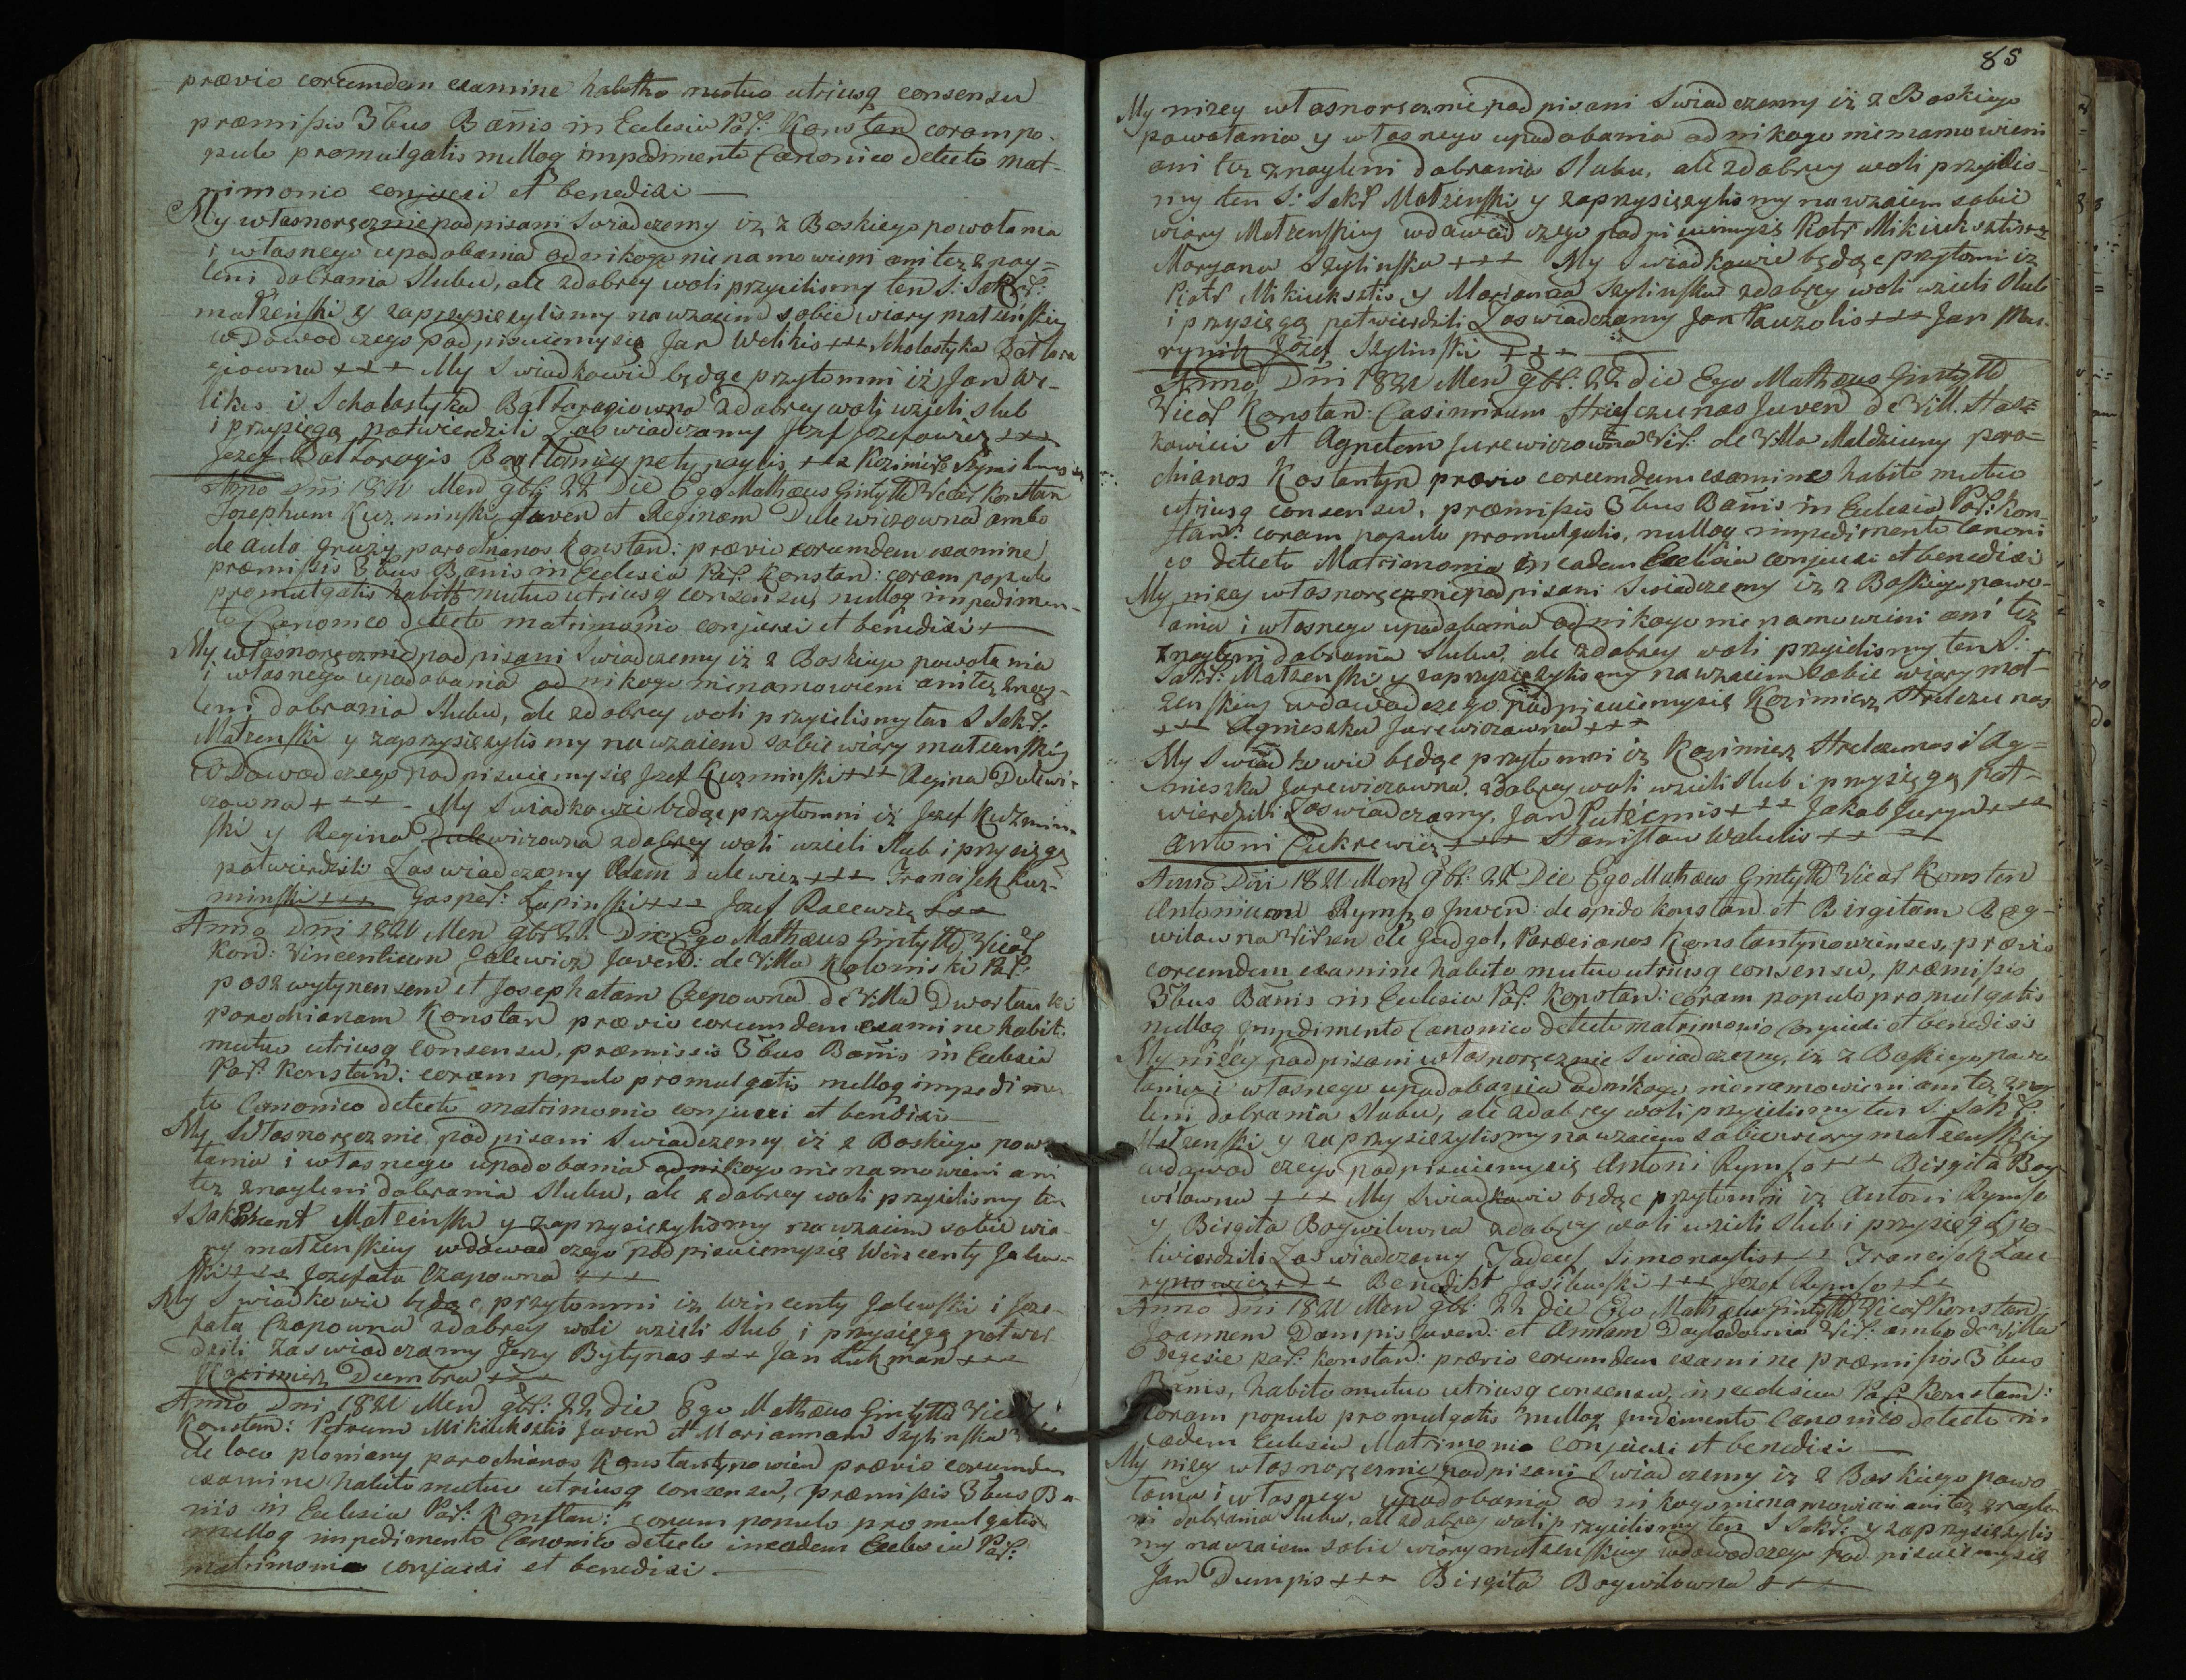 prævio eorumdem examine habitto mutuo utriusq consensu
præmissis 3bus Banis in Eclesia Par: Konstan coram po-
pulo promulgatis nulloq impedimento Canonico detecto mat-
rimonio conjunxi et benedixi —
My własnoręcznie podpisani Swiadczemy iż z Boskiego powołania
i własnego upodobania od nikogo nienamowieni ani też znag=
leni dobrania Slubu, ale zdobrey woli przyszlismy ten S: Sakr:
małżenski y zaprzysięzylismy nawzaiem sobie wiary małzenskiey
wdowod czego podpisuiemysię Jan Welikis +++ Scholastyka Baltora
giowna +++ My Swiadkowie będąc przytomni iż Jan We-
likis i Scholastyka Baltoragiowna zdobrey woli wzieli slub
i przysięgą potwierdzili Zaswiadczamy Jozef Jozefowicz +++
Jozef Baltoragis Bartłomiey petynaytis +++ Kazimierz
Anno Dni 1821 Men 9br 22 Die Ego Mathæus Gintyłło Vicar Konstan
Josephum Kuzminski Juven et Reginam Dulewiczowna ambo
de aula Gruży parochianos Konstan: prævio eorumdem examine
præmissis 3bus Banis in Eclesia Par: Konstan: coram populo
promulgatis habitto mutuo utriusq consensu, nulloq impedimen-
to Canonico detecto matrimonio conjunxi et benedixi —
My własnoręcznie podpisani Swiadczemy iż z Boskiego powołania
i własnego upodobania od nikogo nienamowieni ani też znag-
leni dobrania Slubu, ale zdobrey woli przyszlismy ten S Sakr:
Małzenski y zaprzysięzylismy nawzaiem sobie wiary małzenskiey
wdowod czego podpisuiemysię Jozef Kuzminski +++ Regina Dulewi-
czowna +++ - My Swiadkowie będąc przytomni iż Jozef Kuzmin-
ski y Regina Dulewiczowna zdobrey woli wzieli Slub i przysięgą
potwierdzili Zaswiadczamy Adam Dulewicz +++ Franciszek Kuz-
minski +++ Gasper: Łapinski +++ Jozef Racewicz +++
Anno Dni 1821 Men 9br 22 Die Ego Mathæus Gintyłło Vicar
Kon: Vincentium Galewicz Juven: de Villa Kalowiski Par:
poszwytynensem et Josephatam Czepowna de Villa
parochianam Konstan prævio eorumdem examine habit:
mutuo utriusq consensu, præmissis 3bus Banis in Eclesia
Par: Konstan: coram populo promulgatis nulloq impedimen
to Canonico detecto matrimonio conjunxi et benedixi —
My Własnoręcznie podpisani Swiadczemy iż z Boskiego powo
łania i własnego upodobania odnikogo nienamowieni ani
też znagleni dobrania Slubu, ale zdobrey woli przyszlismy ten
S Sakrament Małzenski y zaprzysięzylismy nawzaiem sobie wia-
ry małzenskiey wdowod czego podpisuiemysię Wincenty Galew-
ski +++ Jozefata Czapowna +++
My Swiadkowie będąc przytomni iż Wincenty Galewski i Joze-
fata Czapowna zdobrey woli wzieli Slub i przysięgą potwier
dzili Zaswiadczamy Jerzy Bytynas +++ Jan Łukman +++
Kazimierz Dumbra +++
Anno Dni 1821 Men 9br: 22 die Ego Mathæus Gintyłło Vicar
Konstan: Petrum Mikiukszlis Juven et Mariannam Szylinska
de loco ploniany parochianos Konstantynowien prævio eorumdem
examine habito mutuo utriusq consensu, præmissis 3bus Ba-
nis in Eclesia Par: Konstan: coram populo promulgatis
nulloq impedimento Canonico detecto ineadem Eclesia Par:
matrimonio conjunxi et benedixi. —
85
My nizey własnoręcznie podpisani Swiadczemy iż z Boskiego
powołania y własnego upodobania od nikogo nienamowieni
ani też znagleni dobrania Slubu, ale zdobrey woli przyszlis-
my ten S: Sakr Małzenski y zaprzysięzylismy nawzaiem sobie
wiary Małzenskiey wdowod czego podpisuiemysię Piotr Mikiukszlis +++
Maryana Szylinska +++ My Swiadkowie będąc przytomni iż
Piotr Mikiukszlis y Marianna Szylinska zdobrey woli wzieli Slub
i przysięgą potwierdzili Zaswiadczamy Jan Tauzolis +++ Jan Mar-
Jozef Szylinski +++ —
Anno Dni 1821 Men 9br: 22 die Ego Mathæus Gintyłło
Vicar Konstan: Casimirum Strelczunas Juven de Vill. Stas=
kowicu et Agnetem Jurewiczowna Vir: de Villa Meldziuny paro=
chianos Kostantyn prævio eorumdem examine habito mutuo
utriusq consensu, præmissis 3bus Banis in Eclesia Par: Kon-
stan: coram populo promulgatis, nulloq impedimento Canoni
co detecto Matrimonio in eadem Eclesia conjunxi et benedixi
My nizey własnoręcznie podpisani Swiadczemy iż z Boskiego powo-
łania i własnego upodobania od nikogo nienamowieni ani też
znagleni dobrania Slubu, ale zdobrey woli przyszlismy ten S:
Sakr: Małzenski y zaprzysięzylismy nawzaiem sobie wiary mał-
zenskiey wdowod czego podpisuiemysię Kazimierz Strelczunas
+++ Agnieszka Jurewiczowna +++
My Swiadkowie będąc przytomni iż Kazimierz Strelczunas i Ag=
nieszka Jurewiczowna, zdobrey woli wzieli Slub i przysięgą pot-
wierdzili Zaswiadczamy, Jan Putécmis +++ Jakob Juryn +++
Antoni Cukrewicz +++ Stanisław Wabulis +++
Anno Dni 1821 Men 9br 22 Die Ego Mathæus Gintyłło Vicar Konstan
Antonium Rymszo Juven: de opido Konstan et Birgitam Bog-
wilowna Virgen de Gudgol, Parocianos Konstantynowienses, prævio
eorumdem examine habito mutuo utriusq consensu, præmissis
3bus Banis in Eclesia Par: Konstan: coram populo promulgatis
nulloq impedimento Canonico detecto matrimonio Conjunxi et benedixi
My nizey podpisani własnoręcznie Swiadczemy, iż z Boskiego powo
łania i własnego upodobania odnikogo nienamowieni ani też znag
leni dobrania Slubu, ale zdobrey woli przyszlismy ten S: Sakr:
Małzenski y zaprzysięzylismy nawzaiem sobie wiary małzenskiey
wdowod czego podpisuiemysię Antoni Rymszo +++ Birgita Bog-
wilowna +++ My Swiadkowie będąc przytomni iż Antoni Rymszo
y Birgita Bogwilowna zdobrey woli wzieli Slub i przysięgą po-
twierdzili Zaswiadczamy Tadeusz Simonaytis +++ Franciszek Law
rynowicz +++ Benedikt Jasilewski +++ Jozef Rymszo +++
Anno Dni 1821 Men 9br: 22 die Ego Mathæus Gintyłło Vicar Konstan
Joannem Dampis Juven: et Annam Daylodownia Vir: ambo de Villa
Degesie par: Konstan: prævio eorumdem examine præmissis 3bus
Banis, habito mutuo utriusq consensu, in eclesia Par: Konstan:
coram populo promulgatis nulloq Canonico detecto in
eadem Eclesia Matrimonio Conjunxi et benedixi —
My nizey własnoręcznie podpisani Swiadczemy iż z Boskiego powo
łania i własnego upodobania od nikogo nienamowieni ani też znagle
ni dobrania Slubu, ale zdobrey woli przyszlismy ten S Sakr: y zaprzysięzylis
my nawzaiem sobie wiary małzenskiey wdowod czego podpisuiemysię
Jan Dumpis +++ Birgita Bogwilowna +++